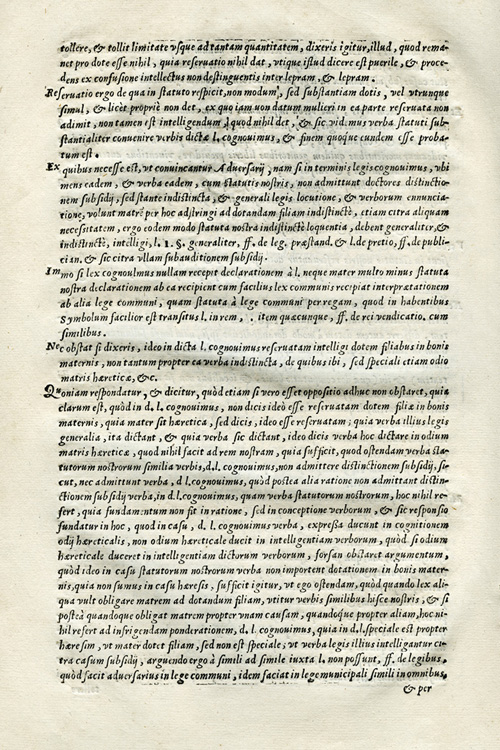 tollere, & tollit limitate vsque ad tantam quantitatem, dixeris igitur, illud, quod rema-
net pro dote esse nihil, quia reseruatio nihil dat, vtique istud dicere est puerile, & proce-
dens ex confusione intellectus non destinguentis inter lepram, & lepram.
Reseruatio ergo de qua in statuto respicit, non modum, sed substantiam dotis, vel vtrunque
simul, & licèt propriè non det, ex quo iam uon datum mulieri in ea parte reseruata non
adimit, non tamen est intelligendum, quod nihil det, & sic vidimus verba statuti sub-
stantialiter conuenire verbis dictæ l. cognouimus, & finem quoque eundem esse proba-
tum est.
Ex quibus necesse est, vt conuincantur Aduersarij, nam si in terminis legis cognouimus, vbi
mens eadem, & verba eadem, cum statutis nostris, non admittunt doctores distinctio-
nem subsidij, sed stante indistincta, & generali legis locutione, & verborum enuncia-
tione, volunt matrē per hoc adstringi ad dotandam filiam indistinctè, etiam citra aliquam
necessitatem, ergo eodem modo statuta nostra indistinctè loquentia, debent generaliter, &
indistinctè, intelligi, l. 1. §. generaliter, ff. de leg. præstand. & l. de pretio, ff. de publi-
cian. & sic citra vllam subauditionem subsidij.
Immo si lex cognoulmus nullam recepit declarationem à l. neque mater multo minus statuta
nostra declarationem ab ea recipient cum facilius lex communis recipiat interpræiationem
ab alia lege communi, quam statuta à lege communi per regam, quod in habentibus
symbolum facilior est transitus l. in rem, . item quæcunque, ff. de rei vendicatio. cum
similibus.
Nec obstat si dixeris, ideo in dicta l. cognouimus reseruatam intelligi dotem filiabus in bonis
maternis, non tantum propter ea verba indistincta, de quibus ibi, sed speciali etiam odio
matris hæreticæ, &c.
Quoniam respondatur, & dicitur, quòd etiam si vero esset oppositio adhuc non obstaret, quia
clarum est, quòd in d. l. cognouimus, non dicis ideò esse reseruatam dotem filiæ in bonis
maternis, quia mater sit hæretica, sed dicis, ideo esse reseruatam, quia verba illius legis
generalia, ita dictant, & quia verba sic dictant, ideo dicis verba hoc dictare in odium
matris hæreticæ, quod nihil facit ad rem nostram, quia sufficit, quod ostendam verba sta-
tutorum nostrorum similia verbis, d.l. cognouimus, non admittere distinctionem subsidij, si-
cut, nec admittunt verba, d l. cognouimus, quòd postea alia ratione non admittant distin-
ctionem subsidij verba, in d.l. cognouimus, quam verba statutorum nostrorum, hoc nihil re-
fert, quia fundamentum non fit in ratione, sed in conceptione verborum, & sic responsio
fundatur in hoc, quod in casu, d. l. cognouimus verba, expressa ducunt in cognitionem
odij hæreticalis, non odium hæreticale ducit in intelligentiam verborum, quòd si odium
hæreticale duceret in intelligentiam dictorum verborum, forsan obstaret argumentum,
quòd ideo in casu statutorum nostrorum verba non important dotationem in bonis mater-
nis, quia non sumus in casu hæresis, sufficit igitur, vt ego ostendam, quòd quando lex ali-
qua vult obligare matrem ad dotandum filiam, vtitur verbis similibus hisce nostris, & si
posteà quandoque obligat matrem propter vnam causam, quandoque propter aliam, hoc ni-
hil refert ad infrigendam ponderationem, d. l. cognouimus, quia in d.l. speciale est propter
hæresim, vt mater dotet filiam, sed non est speciale, vt verba legis illius intelligantur ci-
tra casum subsidij, arguendo ergo à simili ad simile iuxta l. non possunt, ff. de legibus,
quòd facit aduersarius in lege communi, idem faciat in lege municipali simili in omnibus,
& per